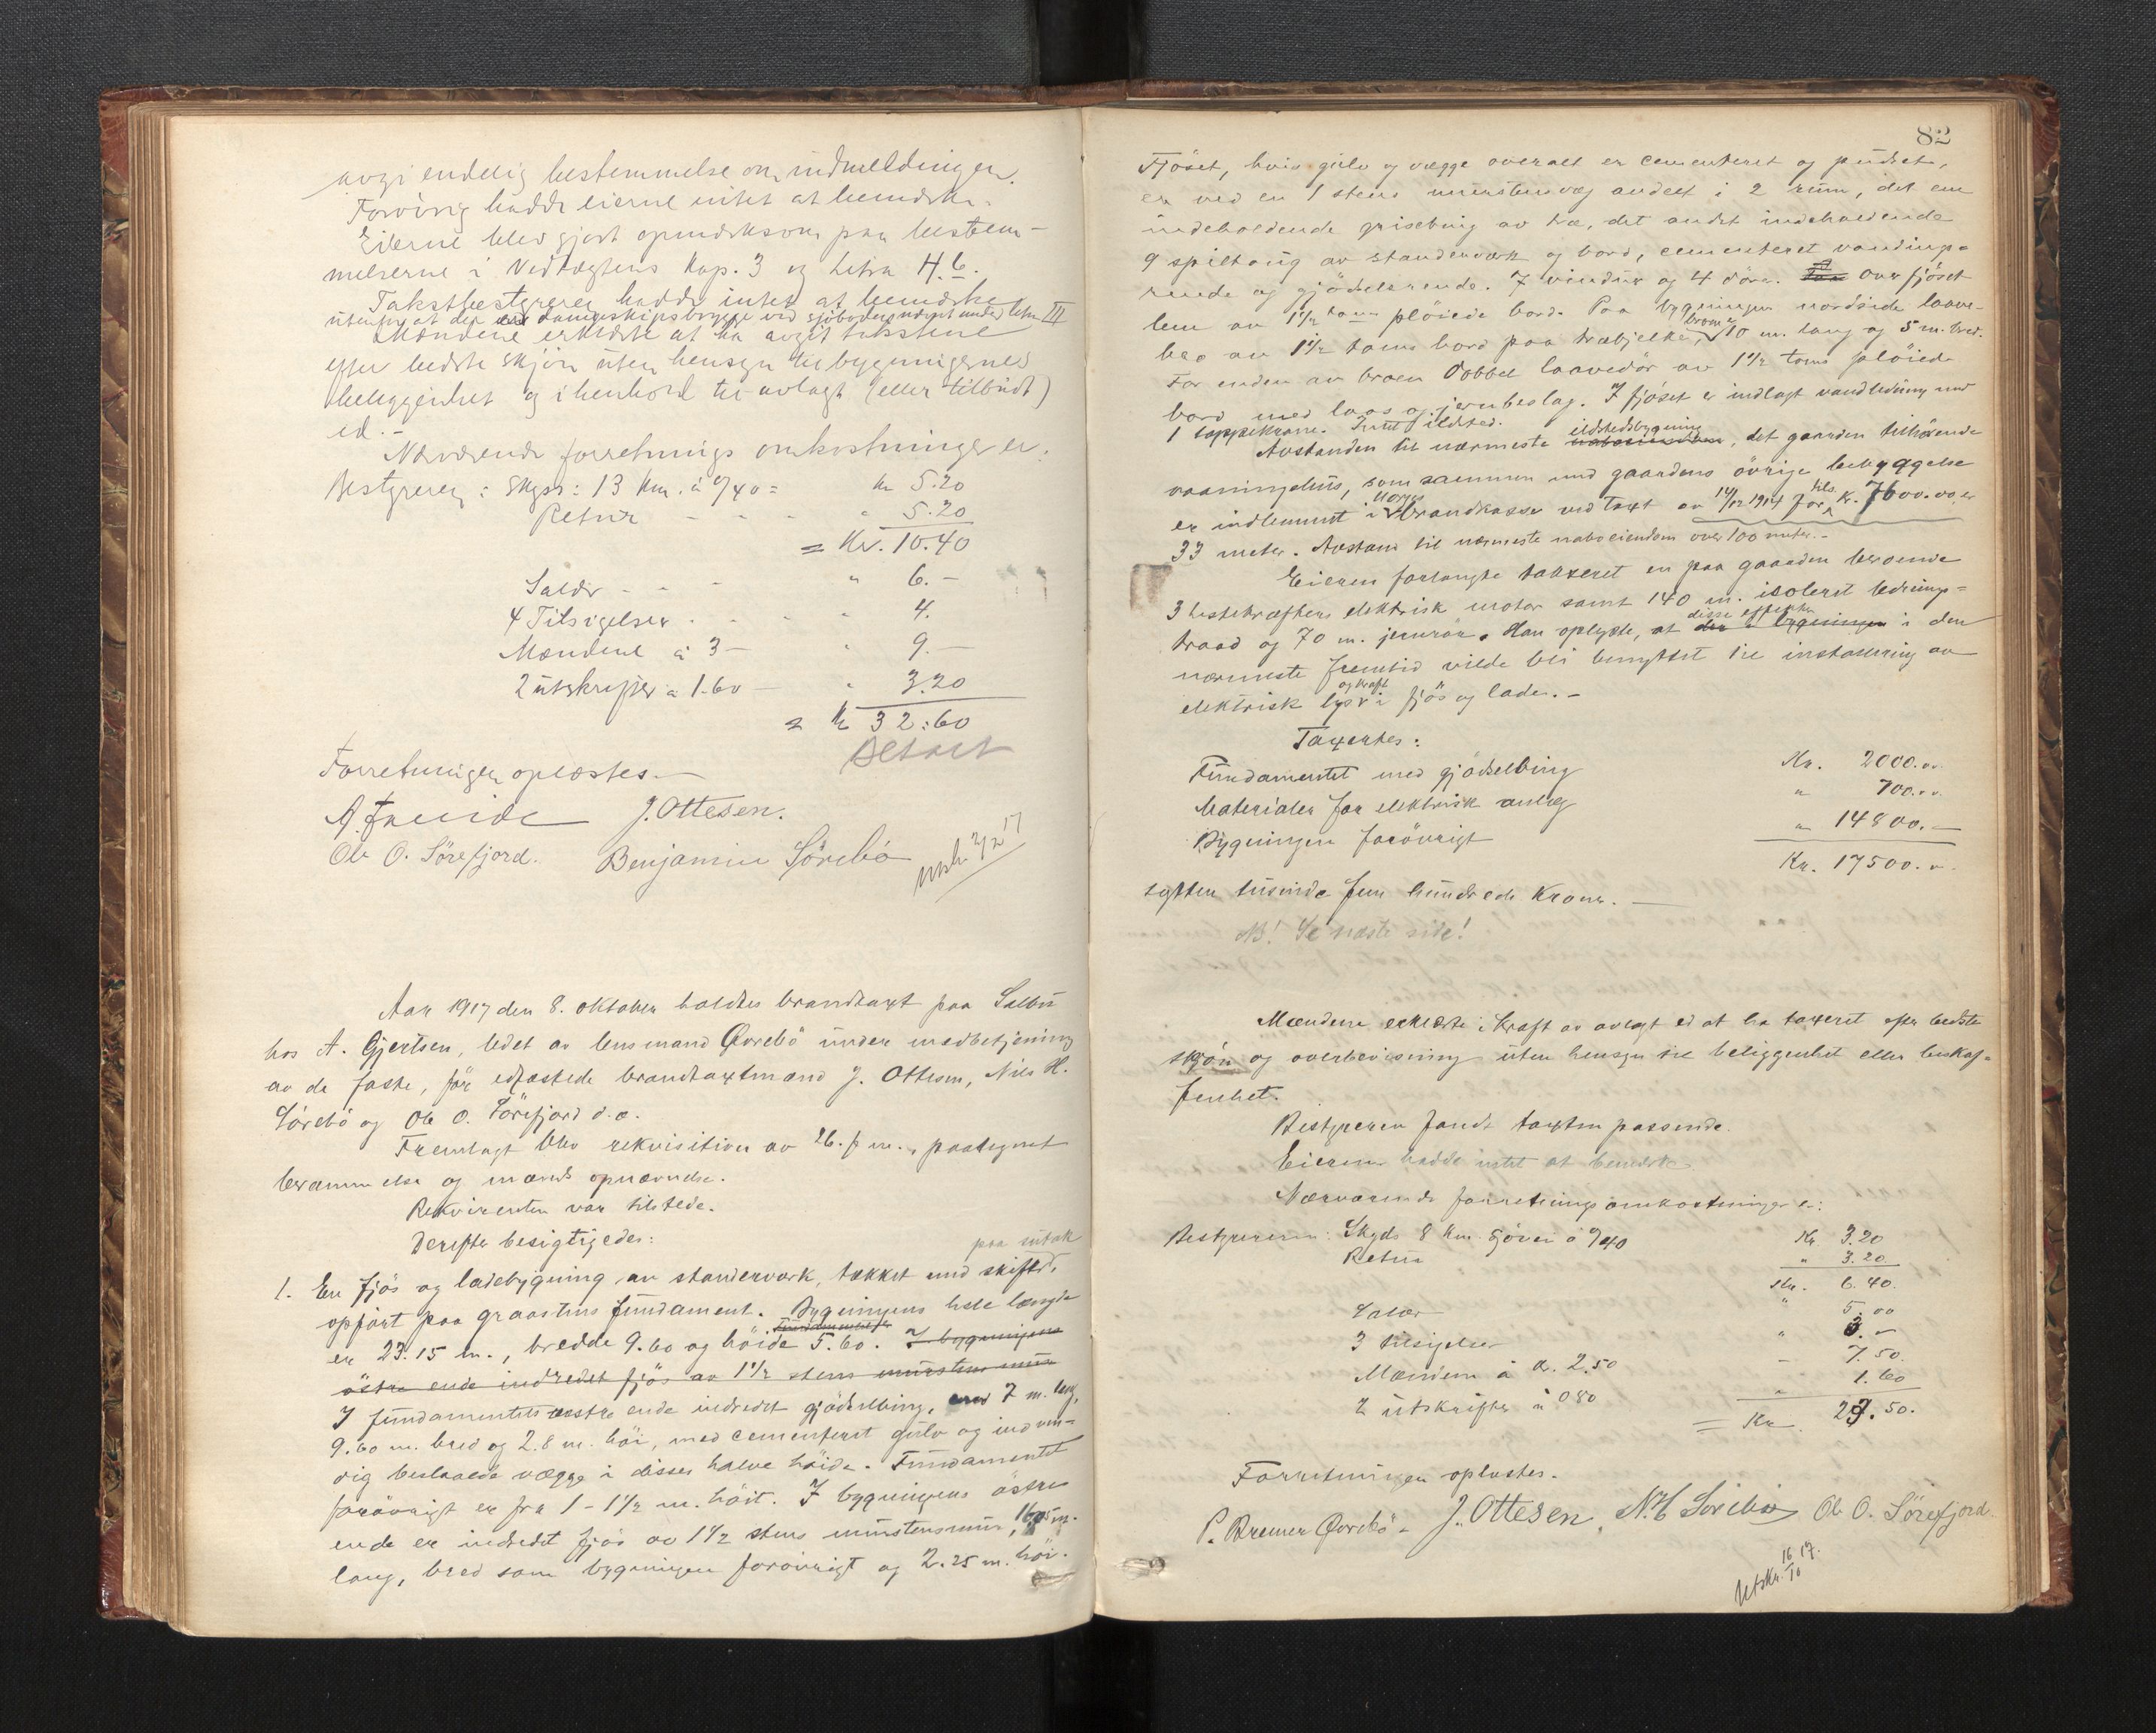 avgi endelig bestemmelse om indmeldingen.
Forøvrig hadde eierne intet at bemerke.
Eierne blev gjort opmerksom paa bestem-
melserne i Vedtægtens Kap. 3 og Litra H. 6.
Takstbestyreren hadde intet at bemerke
utenfor at der dampskipsbrygge ved sjøboden nævnt under litra III
Mændene erklærte at ha avgit takstene
efter bedste skjøn uten hensyn til bygningernes
beliggenhet og i henhold til avlagt (eller tilbudt)
ed.-
Nærværende forretnings omkostninger er:
Bestyreren: Skyss: 13 Km. à 0/40 = Kr 5.20
Retur - - - " 5.20
= Kr. 10.40
Salær - - " 6.-
4 Tilsigelser - - - 4.
Mændene à 3 - " 9.-
2 utskrifter à 1.60 - " 3.20
= Kr 32:60
Betalt
Forretningen oplæstes.-
J. Ottesen.
Ole O. Sörefjord. Benjamin Sörebö
Utsk. 2/2 17
Aar 1917 den 8. oktober holdtes brandtaxt paa Salbu
hos A. Gjertsen, ledet av lensmand Øvrebö under medbetjening
av de faste, før edfæstede brandtaxtmænd J. Ottesen, Nils H.
Sörebö og Ole O. Sörefjord d.æ.
Fremlagt blev rekvisition av 26. f. m., paategnet
berammelse og mænds opnævnelse.
Rekvirenten var tilstede.
Derefter besigtigedes:
paa sutak
1. En fjös og ladebygning av standerverk, tækket med skifer,
opført paa graastens fundament. Bygningens hele længde
er 23.15 m., bredde 9.60 og höide 5.60. I bygningens
östre ende indredet fjös av 1 1/2 stens murstens mur
I fundamentets vestre ende indredet gjödselbing, 7 m. lang,
9.60 m. bred og 2.8 m. höi, med cementeret gulv og indven-
dig beslaaede vægge i disses halve höide. Fundamentet
forövrigt er fra 1 - 1 1/2 m. höit. I bygningens östre
ende er indredet fjös av 1 1/2 stens murstensmur, 16.05 m.
lang, bred som bygningen forövrigt og 2.25 m. höi.
82
Fjöset, hvis gulv og vægge overalt er cementeret og pudset,
er ved en 1 stens murstensvæg andelt i 2 rum, det ene
indeholdende grisebing av træ, det andet indeholdende
9 spiltaug av standerverk og bord, cementeret vandings-
rende og gjödselrende. 7 vinduer og 4 döre. Over fjöset
lem av 1 1/2 toms plöiede bord. Paa bygningens nordside laave-
bro av 1 1/2 toms bord paa træbjelker, broen er 10 m. lang og 5 m. bred.
For enden av broen dobbel laavedör av 1 1/2 toms plöiede
bord med laas og jernbeslag. I fjöset er indlagt vandledning med
1 tappekrane. Intet ildsted.
Avstanden til nærmeste ildstedsbygning, det gaarden tilhörende
vaaningshus, som sammen med gaardens övrige bebyggelse
er indlemmet i Norges Brandkasse ved taxt av 14/12 1914 for tils. Kr. 7600.00, er
33 meter. Avstand til nærmeste naboeiendom over 100 meter.-
Eieren forlangte taxeret en paa gaarden beroende
3 hestekræfters elektrisk motor samt 140 m. isoleret lednings-
traad og 70 m. jernrör. Han oplyste, at disse effekter i den
nærmeste fremtid vilde bli benyttet til installering av
elektrisk lys og kraft i fjös og lade.-
Taxertes:
Fundamentet med gjödselbing Kr. 2000.00
Materialer for elektrisk anlæg " 700.00
Bygningen forövrigt " 14800.-
Kr. 17500.00
sytten tusinde fem hundrede Kroner.
NB! Se næste side!
Mændene erklærte i kraft av avlagt ed at ha taxeret efter bedste
skjön og overbevisning uten hensyn til beliggenhet eller beskaf-
fenhet.
Bestyreren fandt taxten passende.
Eieren hadde intet at bemerke.
Nærværende forretnings omkostninger er:
Bestyreren: Skyds 8 km. sjövei à 0/40 Kr 3.20
Retur " 3.20
Kr. 6.40
Salær " 5.00
3 tilsigelser " 3.-
Mændene à Kr. 2.50 - 7.50
2 utskrifter à 0 80 " 1.60
= Kr. 23.50.
Forretningen oplæstes.
P. Bremer Øvrebö - J. Ottesen, N. H. Sörebö Ole O. Sörefjord.
Utskr. 16/10 17.